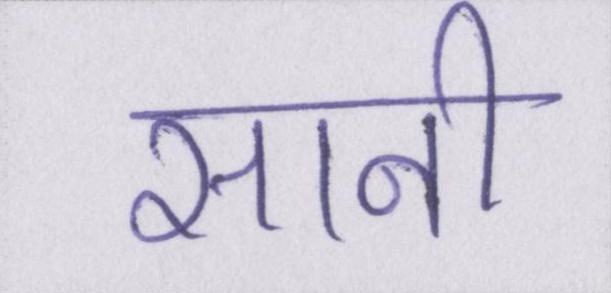 सानी